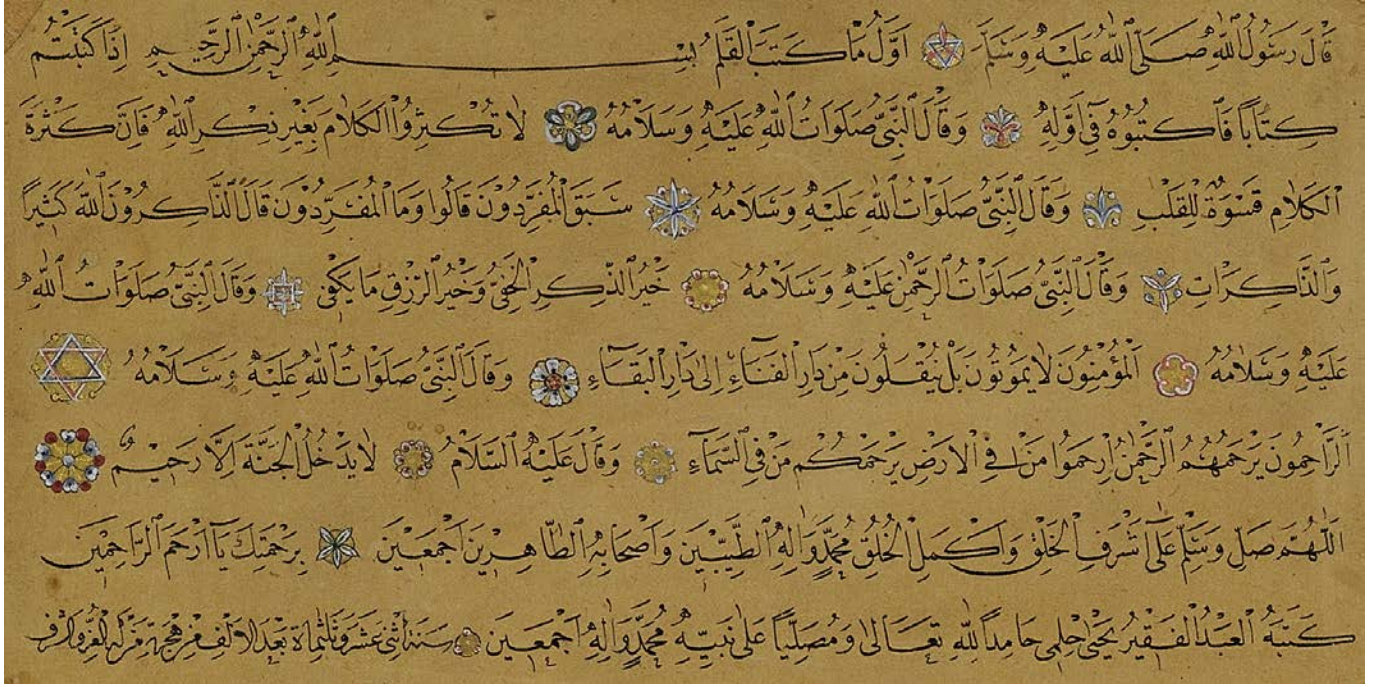 قَالَ رَسُولُ ٱللّٰهِ صَلَّى ٱللّٰهُ عَلَيْهِ وَسَلَّمَ اَوَّلُ مَا كَتَبَ ٱلْقَلَمُ بِسْمِ ٱللّٰهِ ٱلرَّحْمٰنِ ٱلرَّحِيمِ اِذَا كَتَبْتُمْ
كِتَابًا فَٱكْتُبُوُهُ فِي اَوَّلِهِ وَقَالَ ٱلنَّبِيُّ صَلَوَاتُ ٱللّٰهِ عَلَيْهِ وَسَلَامُهُ لَا تُكْثِرُوا ٱلْكَلَامَ بِغَيْرِ ذِكْرِ ٱللّٰهِ فَاِنَّ كَثْرَةَ
ٱلْكَلَامِ قَسْوَةٌ لِلْقَلْبِ وَقَالَ ٱلنَّبِيُّ صَلَوَاتُ ٱللّٰهِ عَلَيْهِ وَسَلَامُهُ سَبَقَ ٱلْمُفَرِّدُوْنَ قَالُوا وَمَا ٱلْمُفَرِّدُوْنَ قَالَ ٱلذَّاكِرُوْنَ ٱللّٰهَ كَثِيْرًا
وَٱلذَّاكِرَاتِ وَقَالَ ٱلنَّبِيُّ صَلَوَاتُ ٱلرَّحْمٰنِ عَلَيْهِ وَسَلَامُهُ خَيْرُ ٱلذِّكْرِ ٱلْخَفِيُّ وَخَيْرُ ٱلرِّزْقِ مَا يَكْفِي وَقَالَ ٱلنَّبِيُّ صَلَوَاتُ ٱللّٰهِ
عَلَيْهِ وَسَلَامُهُ اَلْمُؤْمِنُوْنَ لَا يَمُوْتُوْنَ بَلْ يُنْقَلُوْنَ مِنْ دَارِ ٱلْفَنَاءِ اِلٰى دَارِ ٱلْبَقَاءِ وَقَالَ ٱلنَّبِيُّ صَلَوَاتُ ٱللّٰهِ عَلَيْهِ وَسَلَامُهُ
ٱلرَّاحِمُوْنَ يَرْحَمُهُمُ ٱلرَّحْمٰنُ اِرْحَمُوا مَنْ فِي ٱلْاَرْضِ يَرْحَمْكُمْ مَنْ فِي ٱلسَّمَآءِ وَقَالَ عَلَيْهِ ٱلسَّلَامُ لَا يَدْخُلُ ٱلْجَنَّةَ اِلَّا رَحِيْمٌ
اَللّٰهُمَّ صَلِّ وَسَلِّمْ عَلٰى اَشْرَفِ ٱلْخَلْقِ وَاَكْمَلِ ٱلْخُلُقِ مُحَمَّدٍ وَاٰلِهِ ٱلطَّيِّبِيْنَ وَاَصْحَابِهِ ٱلطَّاهِرِيْنَ اَجْمَعِيْنَ بِرَحْمَتِكَ يَا اَرْحَمَ ٱلرَّاحِمِيْنَ
كَتَبَهُ ٱلْعَبْدُ ٱلْفَقِيْرُ يَحْيٰى حِلْمِي حَامِدًا لِلّٰهِ تَعَالٰى وَمُصَلِّيًا عَلٰى نَبِيِّهِ مُحَمَّدٍ وَاٰلِهِ اَجْمَعِيْنَ سَنَةَ اثْنَى عَشَرَ وَثَلٰثُمِأَة بَعْدَ ٱلْاَلْفِ مِنْ هِجْرَةِ مَنْ لَهُ ٱلْعِزُّ وَٱلشَّرَفُ